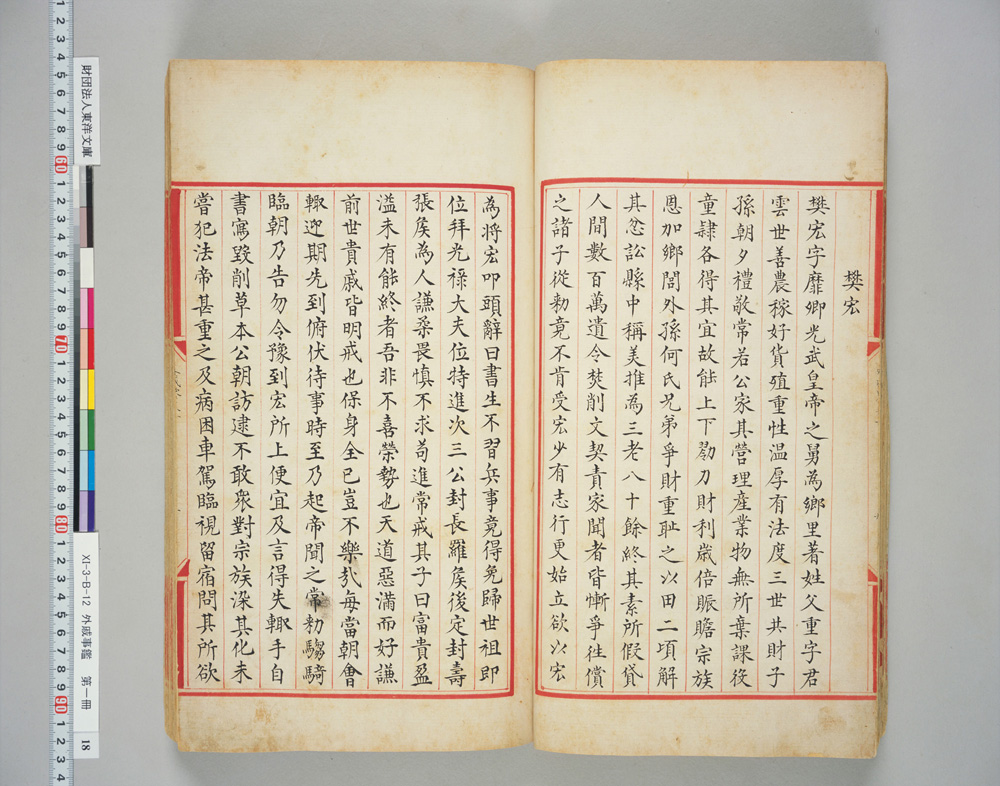 樊宏
樊宏字靡卿光武皇帝之舅為鄉里著姓父重字君
雲世善農稼好貨殖重性温厚有法度三世共財子
孫朝夕禮敬常若公家其營理産業物無所棄課役
童隷各得其宜故能上下勠力財利歲倍賑贍宗族
恩加鄉閭外孫何氏兄弟爭財重耻之以田二項解
其忿訟縣中稱美推為三老八十餘終其素所假貸
人間數百萬遺令焚削文契責家聞者皆慚爭徃償
之諸子從勅竟不肯受宏少有志行更始立欲以宏
為將宏叩頭辭曰書生不習兵事竟得免歸世祖即
位拜光祿大夫位特進次三公封長羅矦後定封壽
張矦為人謙柔畏慎不求苟進常戒其子曰富貴盈
溢未有能終者吾非不喜榮勢也天道惡滿而好謙
前世貴戚皆明戒也保身全已豈不樂哉每當朝會
輙迎期先到俯伏待事時至乃起帝聞之常勅騶騎
臨朝乃告勿令豫到宏所上便宜及言得失輙手自
書寫毀削草本公朝訪逮不敢衆對宗族染其化未
嘗犯法帝甚重之及病困車駕臨視留宿問其所欲
財団法人東洋文庫
XI-3-B-12 外戚事鑑 第一冊 18